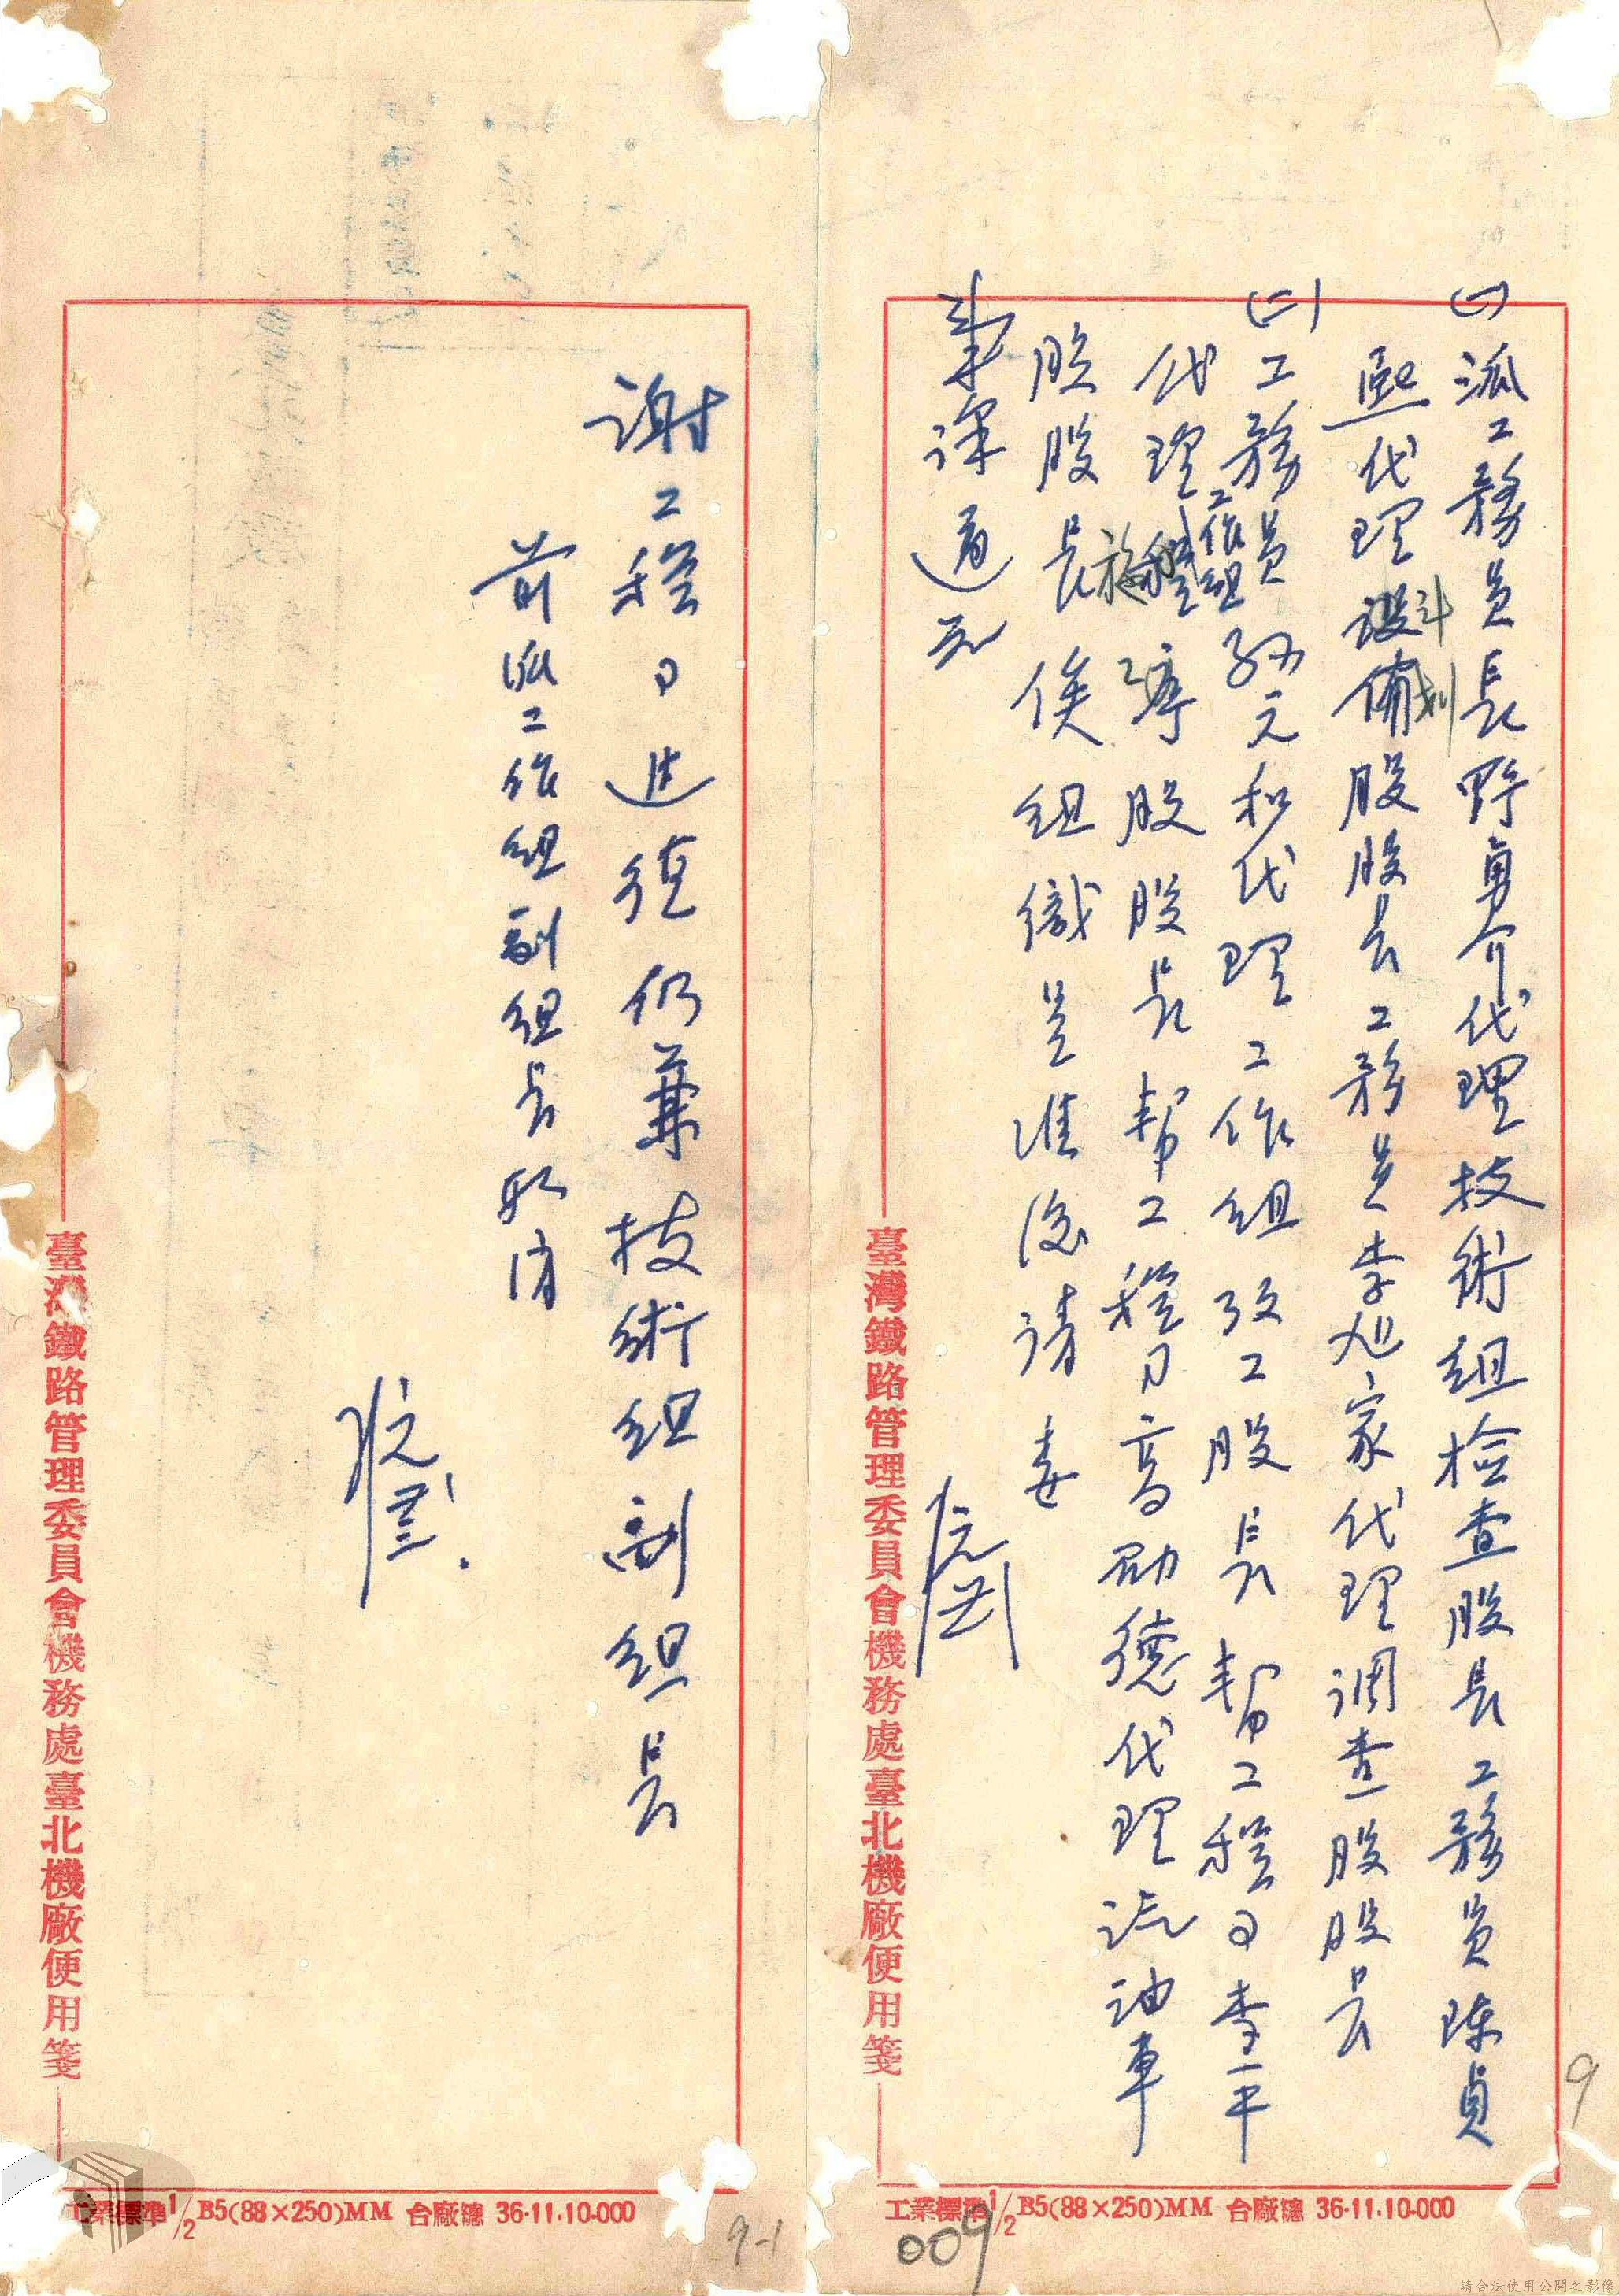 (一)派工務員長野勇介代理技術組檢查股長工務員陳貞
熙代理設備股股長工務員李旭家代理調查股股長
計劃
(二)工務員孫元和代理工作組改工股長幫工程司李一平
代理工作組工程股股長幫工程司高劭德代理汽油車
施
股股長俟組織呈准後請委
事課通知
臺灣鐵路管理委員會機務處臺北機廠便用箋
工業標準1/2B5(88×250)MM 台廠總 36.11.10-000
9
009
謝工程司進德仍兼技術組副組長
前派工作組副組長取消
臺灣鐵路管理委員會機務處臺北機廠便用箋
工業標準1/2B5(88×250)MM 台廠總 36.11.10-000
9-1
請合法使用公開之影像